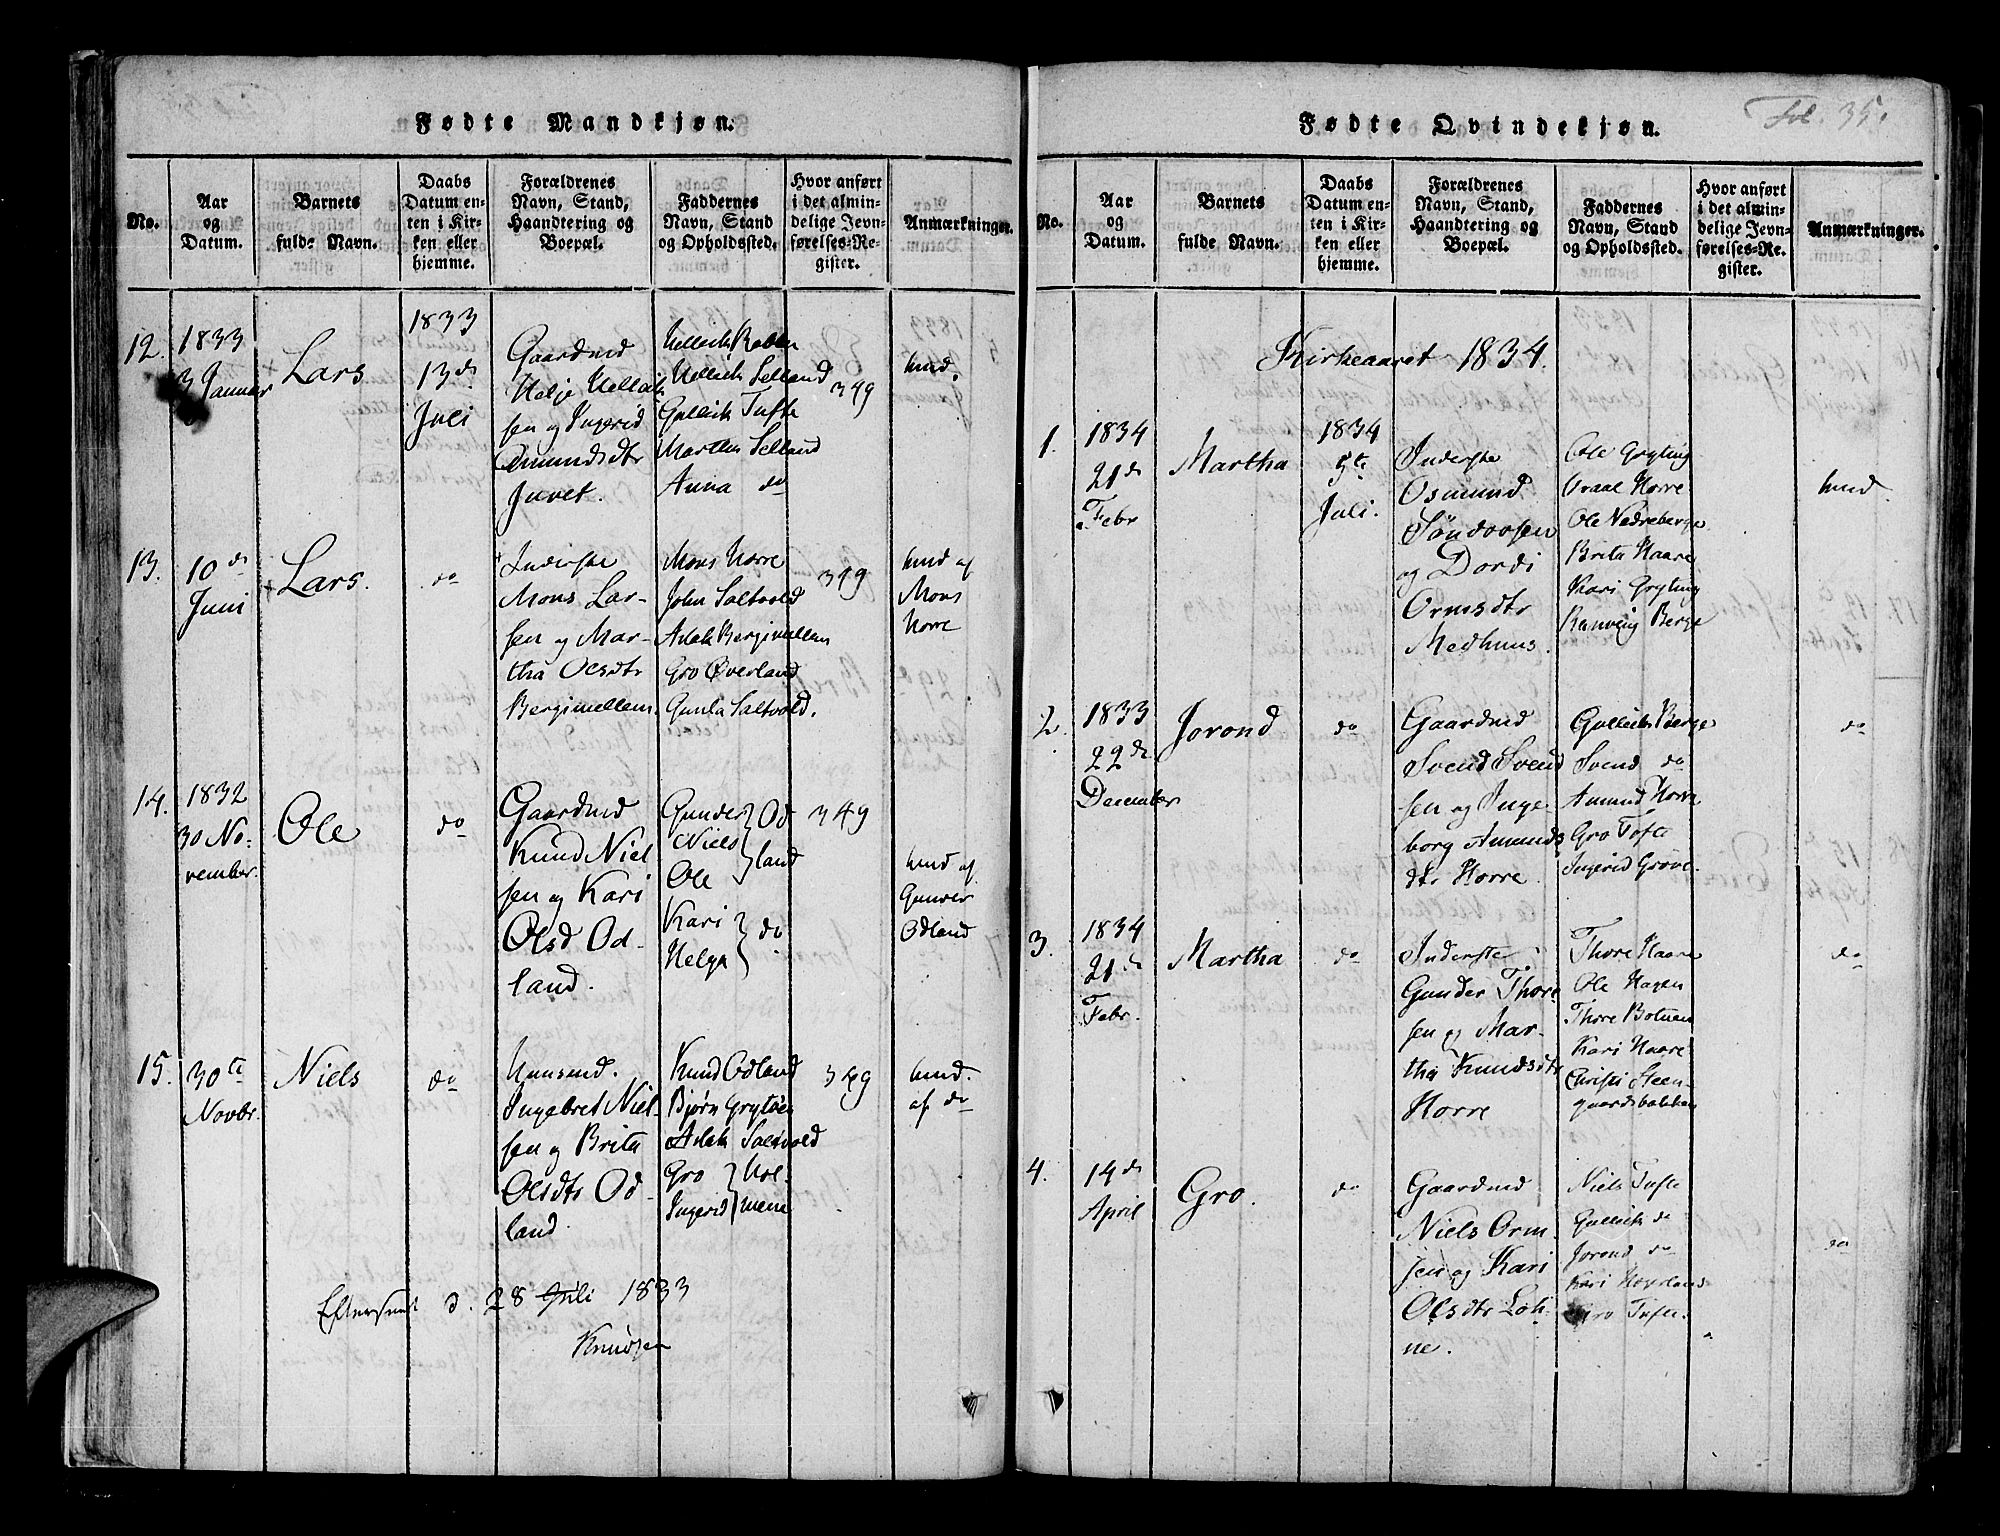 Fødte Mandkjøn.
No.
Aar
og
Datum.
Barnets
fulde Navn.
Daabs
Datum en-
ten i Kir-
ken eller
hjemme.
Forældrenes
Navn, Stand,
Haandtering og
Boepæl.
Faddernes
Navn, Stand
og Opholdssted.
Hvor anført
i det almin-
delige Jevn-
førelses-Re-
gister.
Anmærkninger.
12.
1833
3 Januar
Lars
1833
13de
Juli
Gaardmd
Helje Hellik
sen og Ingerid
Omundsdtr
Juvet.
Hellik
Hellik Selland
Gullik Tufte
Martha Selland
Anna do
349
hmd.
13.
10de
Juni
Lars.
do
Inderste
Mons Lar-
sen og Mar-
tha Olsdtr
Bergimellem.
Mons Horre
John Saltvold
Aslak Bergimellem
Gro Øverland
Gunla Saltvold.
349
hmd af
Mons
Horre
14.
1832
30 No-
vember.
Ole
do
Gaardmd
Knud Niel
sen og Kari
Olsd Od-
land.
Gunder
Niels
Ole
Od
land
Kari
Helga
do
349
hmd af
Gunder
Odland
15.
30te
Novbr.
Niels
do
Huusmd.
Ingebret Niel-
sen og Brita
Olsdtr Od-
land.
Knud Odland
Bjørn Grytøen
Aslak Saltvold
Gro
Ingerid
Hol-
mene
349
hmd.
af do
Efterseet d. 28 Juli 1833
Knudsen
Fol. 35.
Fødte Qvindekjøn.
No.
Aar
og
Datum.
Barnets
fulde Navn.
Daabs
Datum en-
ten i Kir-
ken eller
hjemme.
Forældrenes
Navn, Stand,
Haandtering og
Boepæl.
Faddernes
Navn, Stand
og Opholdssted.
Hvor anført
i det almin-
delige Jevn-
førelses-Re-
gister.
Anmærkninger.
Kirkeaaret 1834.
1.
1834
21de
Febr
Martha
1834
5te
Juli.
Inderste
Osmund
Søndvosen
og Dordi
Ormsdtr
Medhuus.
Ole Gryting
Uraal Horre
Ole Nedreberge
Brita Haare
Kari Gryting
Ranveig Berge
hmd.
2.
1833
22de
December
Jorond
do
Gaardmd
Svend Svend
sen og Inge
borg Amunds
dtr Horre.
Gullik Berge
Svend do
Amund Horre
Gro Tofte
Ingerid Grove.
do
3.
1834
21de
Febr.
Martha
do
Inderste
Gunder Thore
sen og Mar-
tha Knudsdtr
Horre
Thore Haare
Ole Hagen
Thore Botnen
Kari Haare
Christi Steen-
gaardsbakken
do
4.
14de
April
Gro.
do
Gaardmd
Niels Orm-
sen og Kari
Olsdtr Loh-
ne.
Niels Tufte
Gullik do
Jorond do
Kari Hovland
Gro Tufte.
do